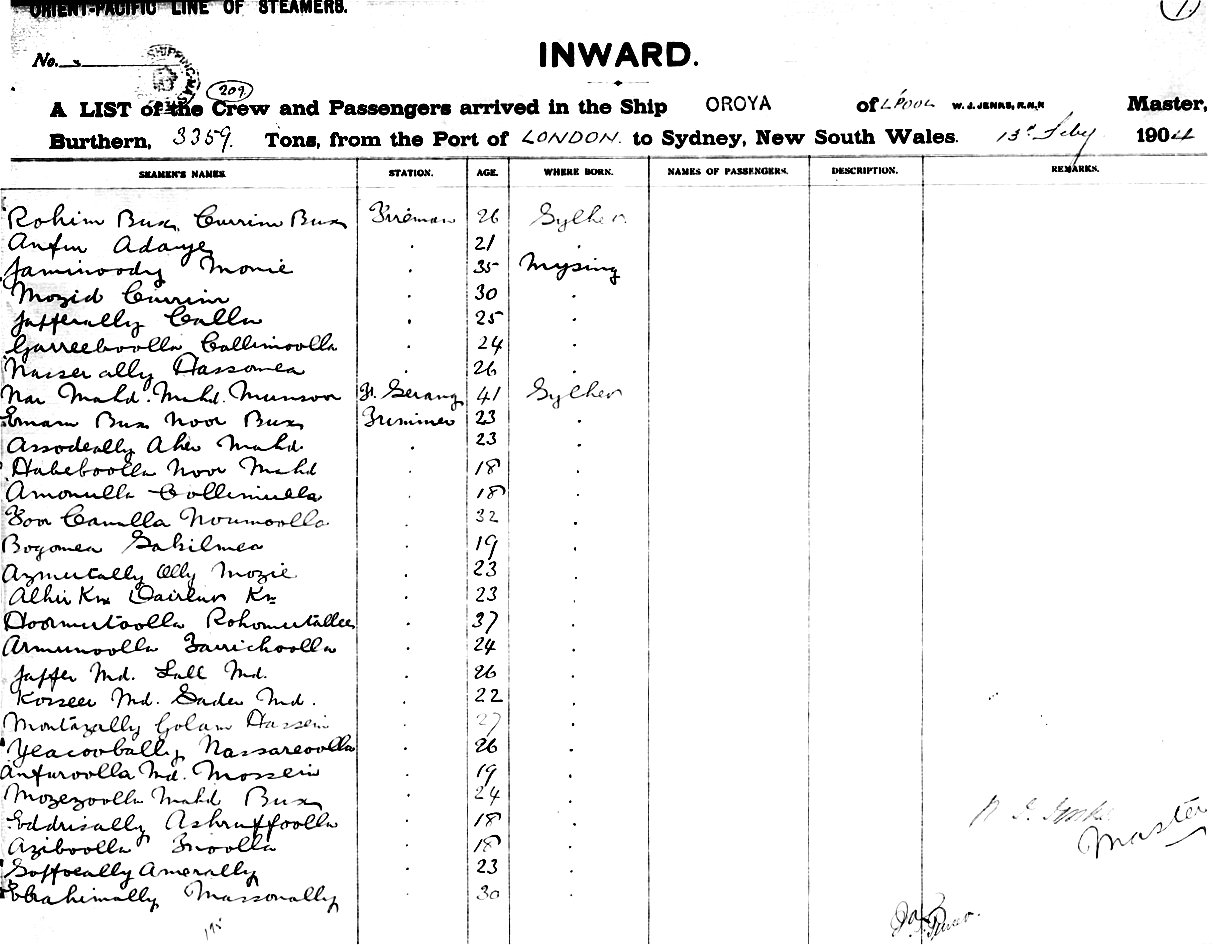 ORIENT-PACIFIC LINE OF STEAMERS.
1.
No.
INWARD.
SHIPPING
209
A LIST of the Crew and Passengers arrived in the Ship OROYA of L'POOL W. J. JENKS, R.N.R Master,
Burthern, 3359. Tons, from the Port of LONDON. to Sydney, New South Wales. 13th Feby 1904
SEAMEN'S NAMES. STATION. AGE. WHERE BORN. NAMES OF PASSENGERS. DESCRIPTION. REMARKS.
Rohim Bux Currim Bux Fireman 26 Sylhet
Adaye 21
Jaminoody Monie 35 Mysing
Mozid Currim 30
Jafferally Calla 25
Garreeboolla Callimoolla 24
Nasserally Hassomea 26
Nar Mahd. Mahd. Munsoor Ft. Serang 41 Sylhet
Emam Bux Noor Bux Trimmer 23
Assodeally Mahd. 23
Habeboolla Noor Mahd 18
Amonulla Collimulla 18
Camulla Noumoolla 32
Bogomea Sakilmea 19
Azmutally Olly Mozie 23
Kn Kn 23
Hoormutoolla Rohomutallee 37
Armunoolla Farrichoolla 24
Jaffer Md. Lall Md. 26
Kosseer Md. Sader Md. 22
Montazally Golam Hassein 27
Yeacoobally Nassareoolla 26
Anfuroolla Md. Mossein 19
Mozezoolla Mahd Bux 24
Eddrisally Ashruffoolla 18
Aziboolla Inoolla 18
Soffocally Amerally 23
Ebrahimally Massonally 30
Master